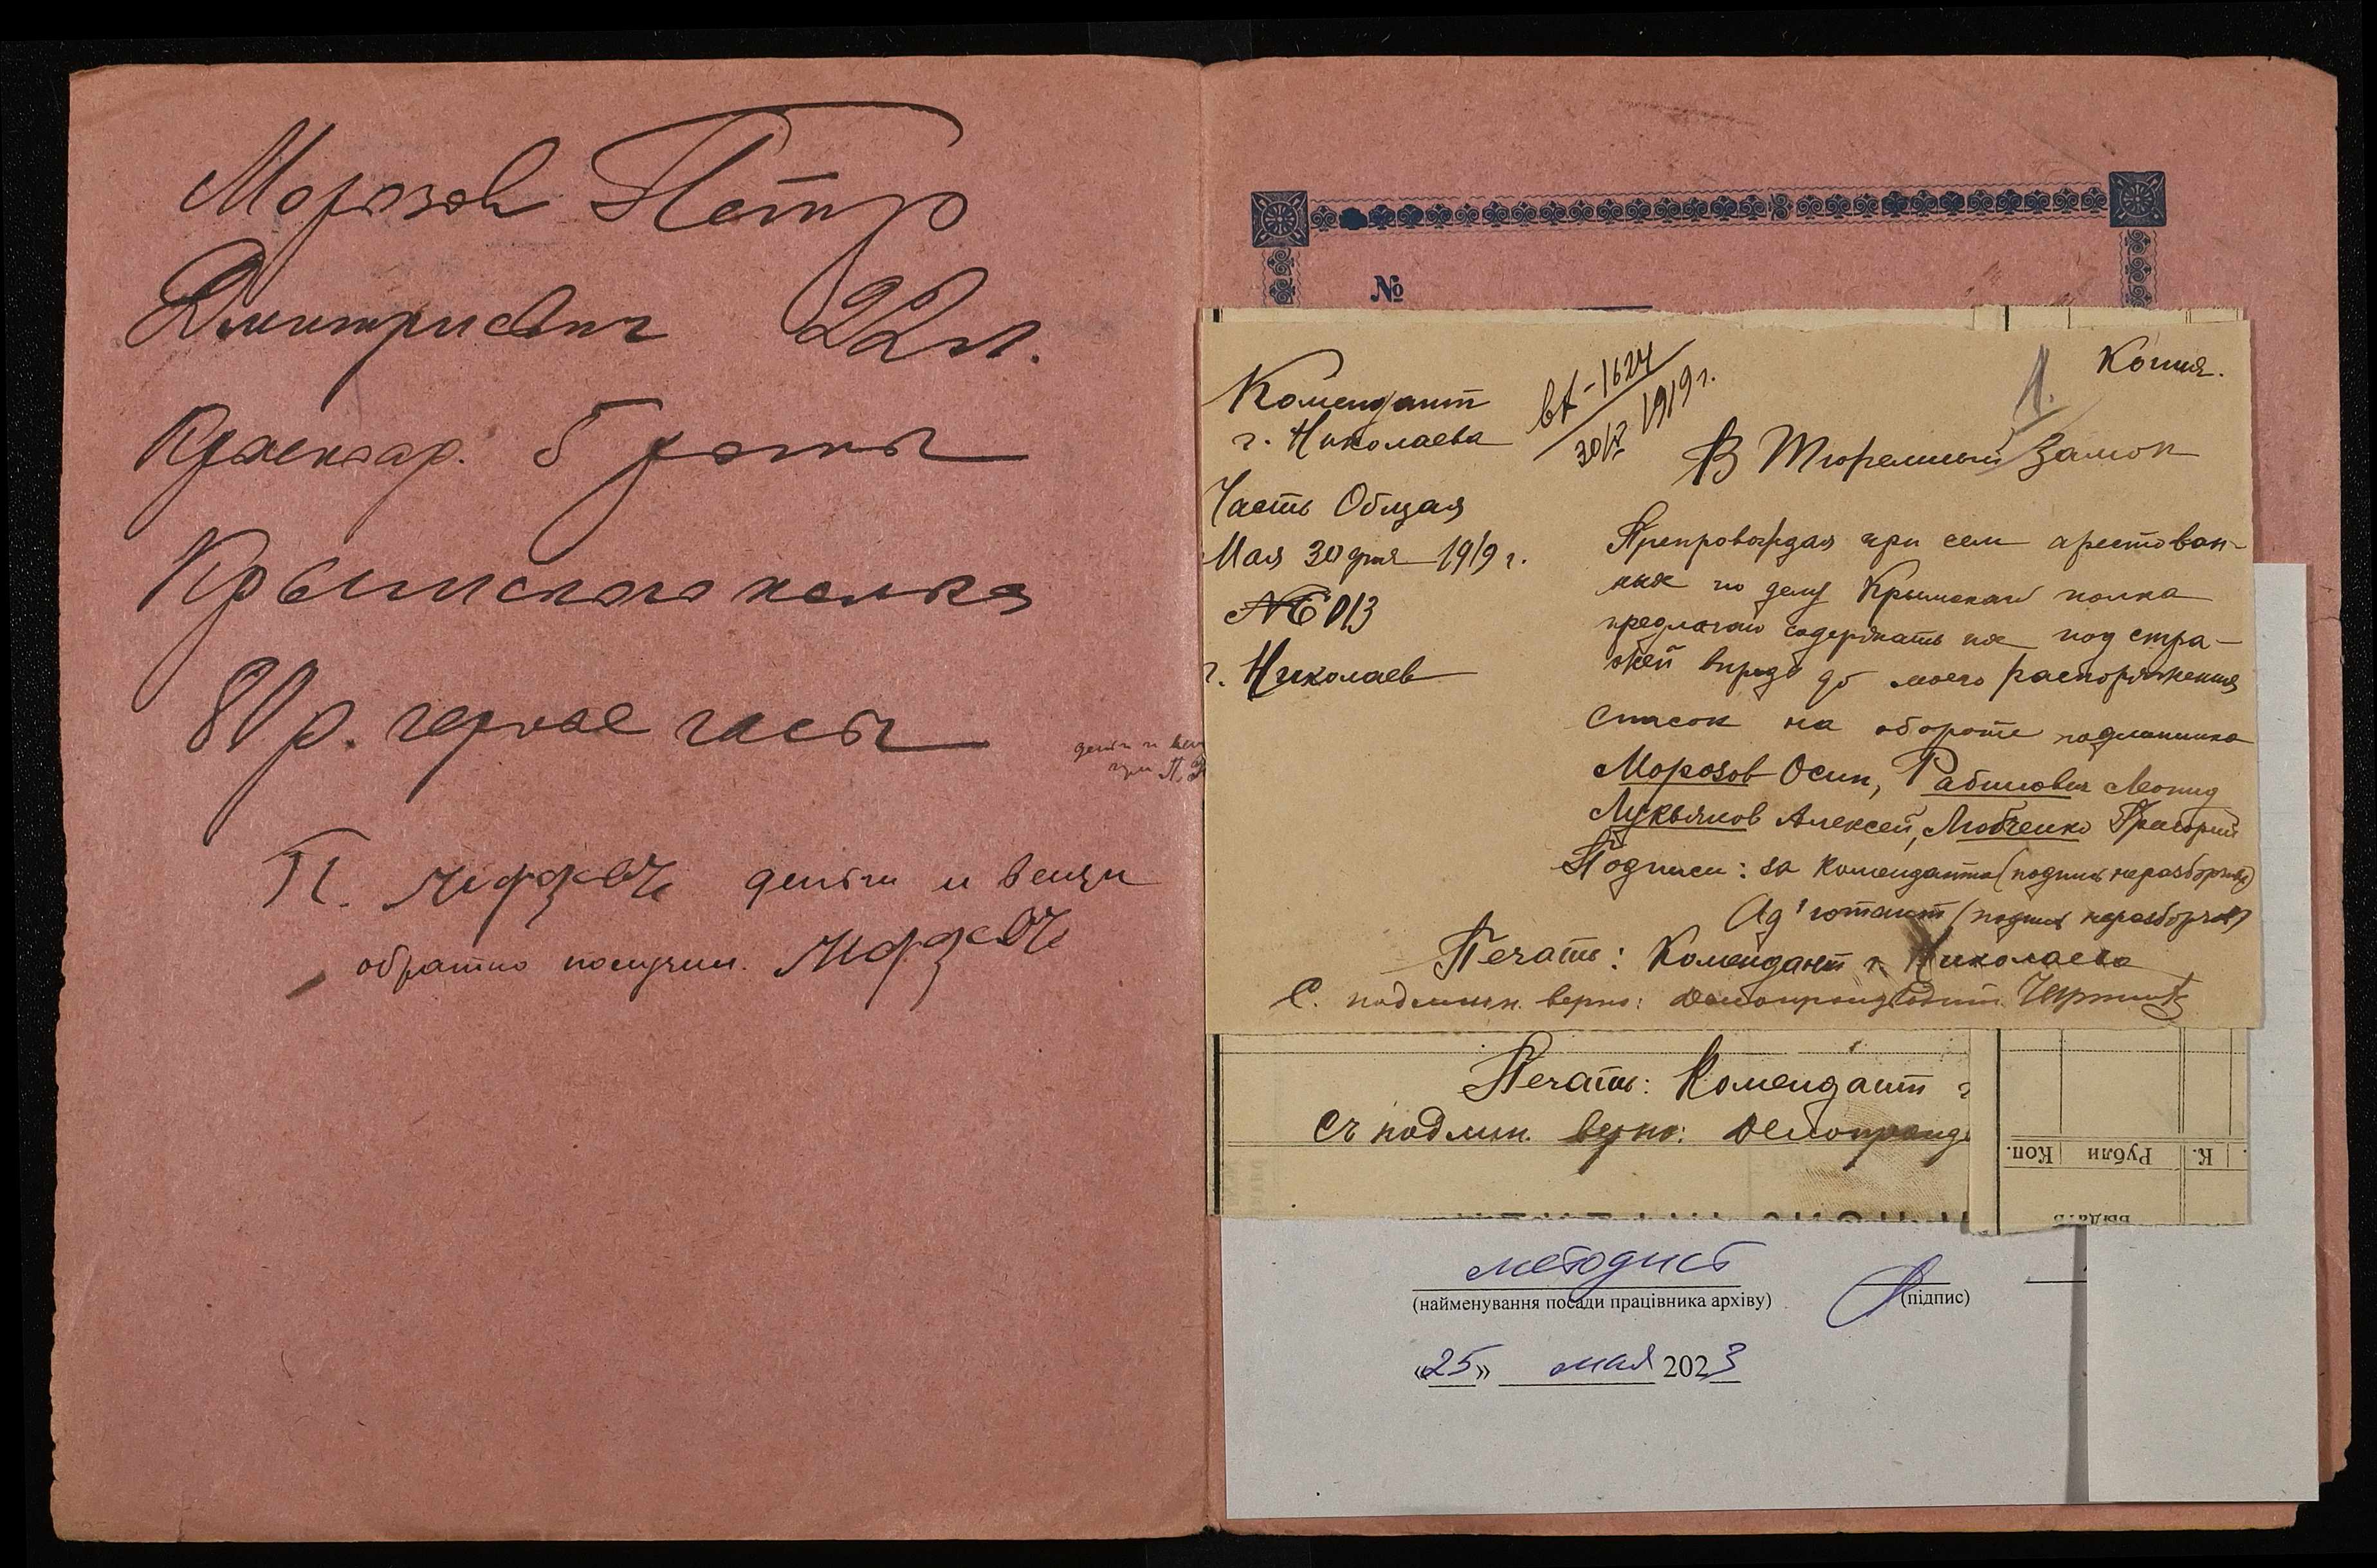 Морозов Петр
Дмитриевич 22 л.
Красноар. 5 роты
Крымского полка
80 р. черные часы
деньги и
при
П. деньги и вещи
обратно получил.
№
Копия.
1.
Комендант
г. Николаева
вх-1624
30/V 1919 г.
В Тюремный Замок
Часть Общая
Мая 30 дня 1919 г.
№ 013
г. Николаев
Препровождая при сем арестован-
ных по делу Крымскаго полка
предлагаю содержать их под стра-
жей впредь до моего распоряжения
Список на обороте подлинника
Морозов Осип, Рабинович Леонид
Лукьянов Алексей, Любченко Григорий
Подписи: за Коменданта (подпись неразборчива)
Ад'ютант (подпись неразборчива)
Печать: Комендант г. Николаева
С. подлин. верно: Делопроизводит.
Печать: Комендант г
Съ подлин. верно: Делопроизв
К. Рубли Коп.
Выдать
методист
(найменування посади працівника архіву) (підпис)
«25» мая 2023